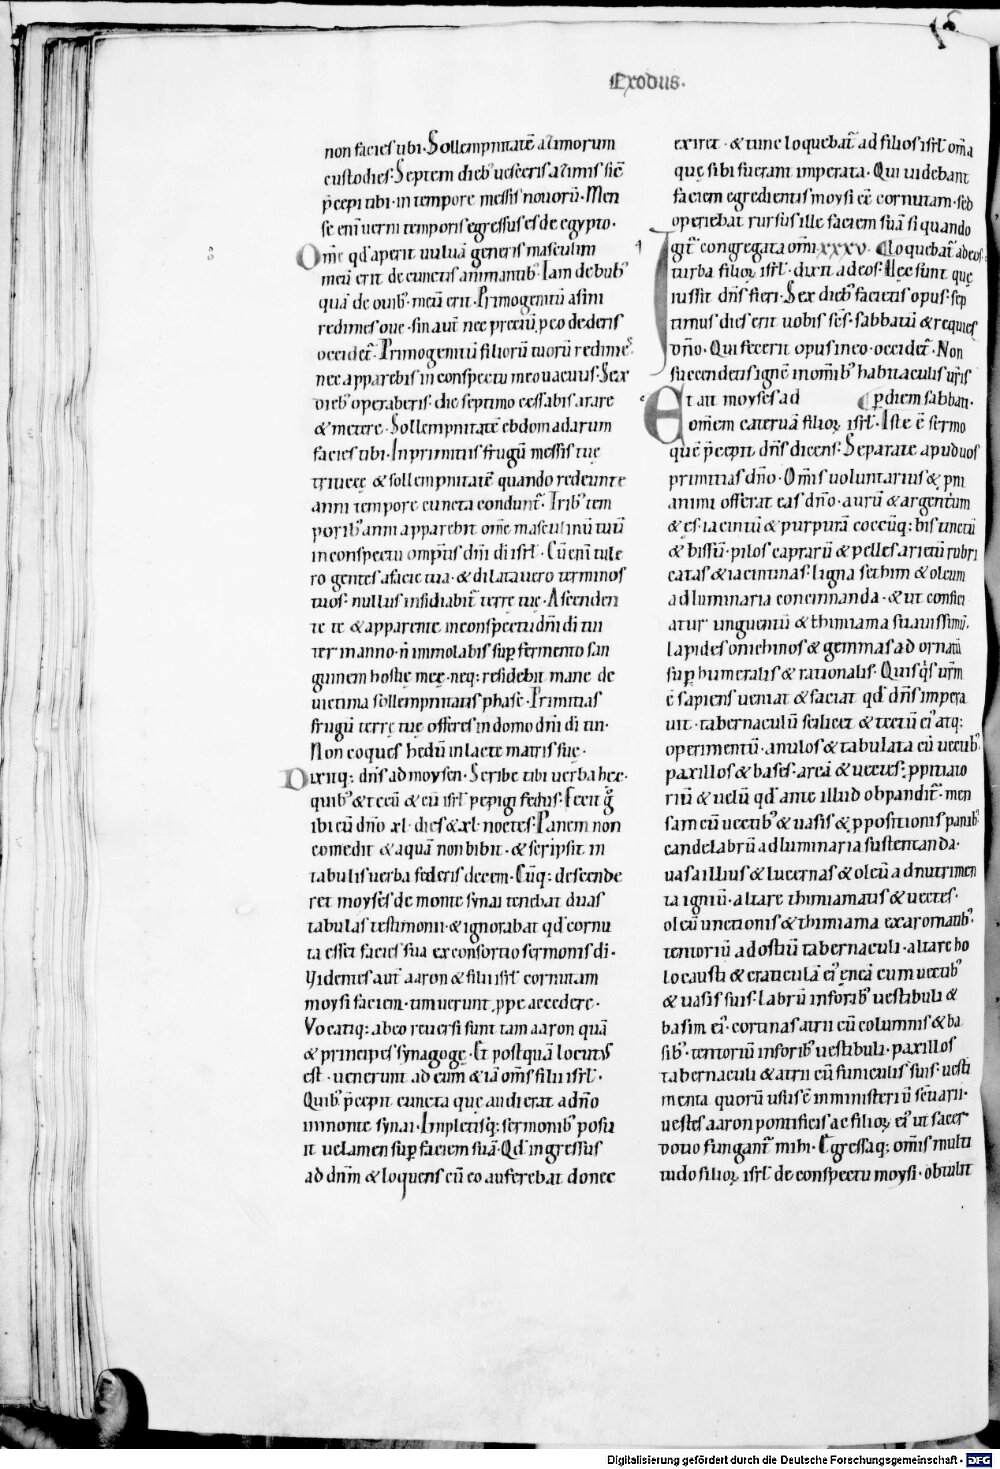 Exodus.
non facies tibi. Sollempnitatē azimorum
custodies. Septem dieb; uesceris azimis sic̄
p̄cepi tibi. in tempore messis nouorū. Men
se eni uerni temporis egressus es de egypto.
Om̄e qd̄ aperit uuluā generis masculini
meū erit. de cunctis animantib; tam de bub;
quā de ouib; meū erit. Primogenitū asini
redimes oue. sin aut̄ nec preciū p eo dederis
occidet̄. Primogenitū filiorū tuorū redimes
nec apparebis in conspectu meo uacuus. Sex
dieb; operaberis. die septimo cessabis arare
& metere. Sollempnitatē ebdomadarum
facies tibi. In primitiis frugū messis tuę
triticeę & sollempnitatē quando redeunte
anni tempore cuncta condunt̄. Trib; tem
porib; anni apparebit om̄e masculinū tuū
in conspectu omp̄tis dn̄i di isrl̄. Cū eni tule
ro gentes a facie tua. & dilatauero terminos
tuos. nullus insidiabit̄ terrę tuę. Ascenden
te te & apparente in conspectu dn̄i di tui
ter in anno. n̄ immolabis sup fermento san
guinem hostię meę. neq; residebit mane de
uictima sollempnitatis phase. Primitias
frugū terrę tuę offeres in domo dn̄i di tui.
Non coques hedū in lacte matris suę.
Dixitq; dn̄s ad moysen. Scribe tibi uerba hec.
quib; & tecū & cū isrl̄ pepigi fedus. Fecit g̊
ibi cū dn̄o xl. dies & xl. noctes. Panem non
comedit & aquā non bibit. & scripsit in
tabulis uerba federis decem. Cūq; descende
ret moyses de monte synai tenebat duas
tabulas testimonii. & ignorabat qd̄ cornu
ta esset facies sua ex consortio sermonis di.
Videntes aut̄ aaron & filii isrl̄ cornutam
moysi faciem. timuerunt ppe accedere.
Vocatiq; ab eo reuersi sunt tam aaron quā
& principes synagogę. Et postquā locutus
est. uenerunt ad eum & iā om̄s filii isrl̄.
Quib; p̄cepit cuncta quę audierat a dn̄o
in monte synai. Impletisq; sermonib; posu
it uelamen sup faciem suā. Qd̄ ingressus
ad dn̄m & loquens cū eo auferebat donec
exiret. & tunc loquebat̄ ad filios isrl̄ om̄a
quę sibi fuerant imperata. Qui uidebant
faciem egredientis moysi eē cornutam. sed
operiebat rursus ille faciem suā si quando
Igit̄ congregata om̄i xxxv. loquebat̄ ad eos.
turba filioꝝ isrl̄. dixit ad eos. Hec sunt quę
iussit dn̄s fieri. Sex dieb; facietis opus. sep
timus dies erit uobis sc̄s. sabbatū & requies
dn̄o. Qui fecerit opus in eo. occidet̄. Non
succendetis ignē in om̄ib; habitaculis ur̄is
Et ait moyses ad p diem sabbati.
om̄em cateruā filioꝝ isrl̄. Iste ē sermo
quē p̄cepit dn̄s dicens. Separate apud uos
primitias dn̄o. Om̄is uoluntarius & pni
animi offerat eas dn̄o. aurū & argentum
& es. iacintū & purpurā coccūq; bis tinctū
& bissū. pilos caprarū & pelles arietū rubri
catas & iacintinas. ligna sethim & oleum
ad luminaria concinnanda. & ut confici
atur unguentū & thimiama suauissimū.
lapides onichinos & gemmas ad ornatū
sup humeralis & rationalis. Quisq̇s ur̄m
ē sapiens ueniat & faciat qd̄ dn̄s impera
uit. tabernaculū scilicet & tectū ei; atq;
operimentū. anulos & tabulata cū uectib;
paxillos & bases. arcā & uectes. ppitiato
riū & uelū qd̄ ante illud obpandit̄. men
sam cū uectib; & uasis & ppositionis panib;
candelabrū ad luminaria sustentanda.
uasa illius & lucernas & oleū ad nutrimen
ta igniū. altare thimiamatis & uectes.
oleū unctionis & thimiama ex aromatib;
tentoriū ad ostiū tabernaculi. altare ho
locausti & craticulā ei; eneā cum uectib;
& uasis suis. labrū in forib; uestibuli &
basim ei;. cortinas atrii cū columnis & ba
sib; tentoriū in forib; uestibuli. paxillos
tabernaculi & atrii cū funiculis suis. uesti
menta quorū usus ē in ministeriū sc̄uarii.
uestes aaron pontificis ac filioꝝ ei; ut sacer
dotio fungant̄ mihi. Egressaq; om̄is multi
tudo filioꝝ isrl̄ de conspectu moysi. obtulit
Digitalisierung gefördert durch die Deutsche Forschungsgemeinschaft - DFG